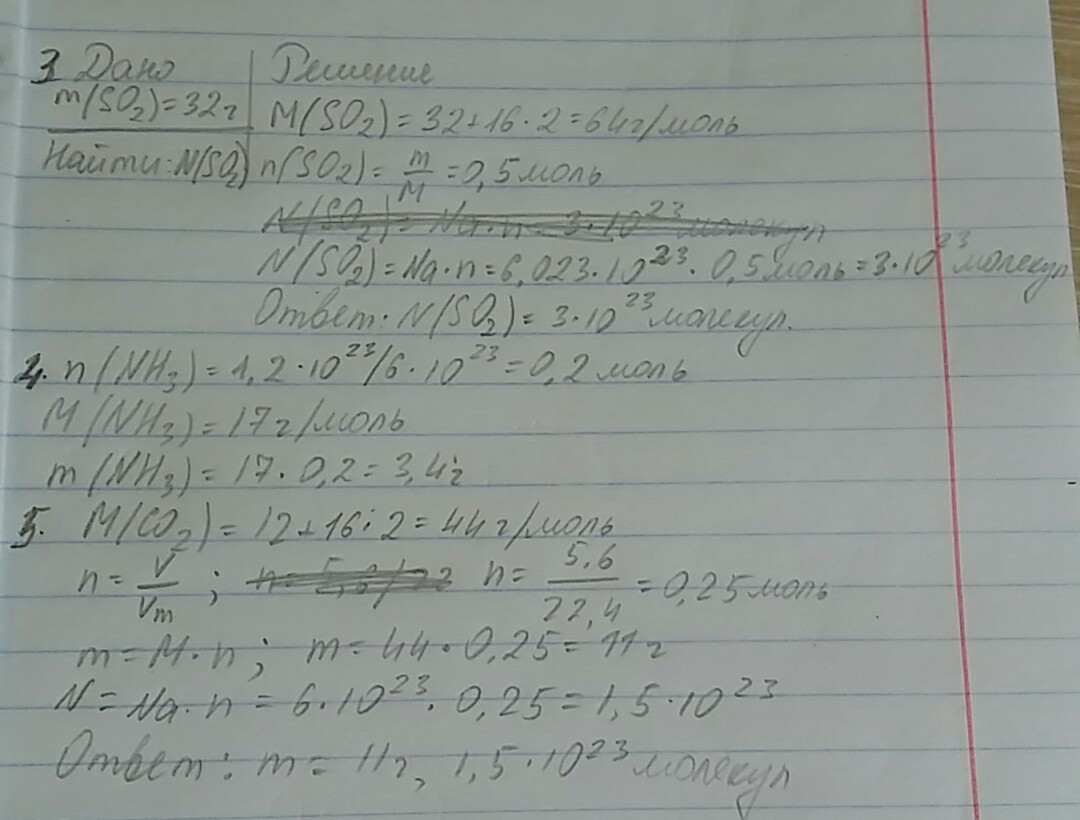 3 Дано Решение
m(SO₂)=32г M(SO₂)=32+16·2=64г/моль
Найти:N(SO₂) n(SO₂)=m/M=0,5моль
N(SO₂)=Na·n=3·10²³молекул
N(SO₂)=Na·n=6,023·10²³·0,5моль=3·10²³молекул
Ответ: N(SO₂)=3·10²³молекул.
4. n(NH₃)=1,2·10²³/6·10²³=0,2моль
M(NH₃)=17г/моль
m(NH₃)=17·0,2=3,4г
5. M(CO₂)=12+16·2=44г/моль
n=V/Vm; n= n=5,6/22,4=0,25моль
m=M·n; m=44·0,25=11г
N=Na·n=6·10²³·0,25=1,5·10²³
Ответ: m=11г, 1,5·10²³молекул